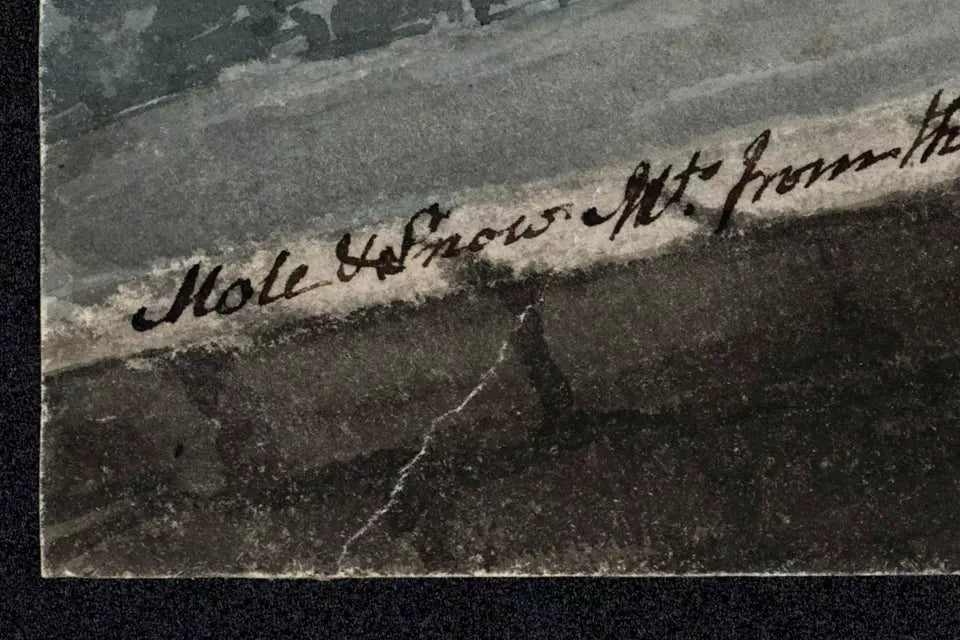 Mole & Snow Mts from the